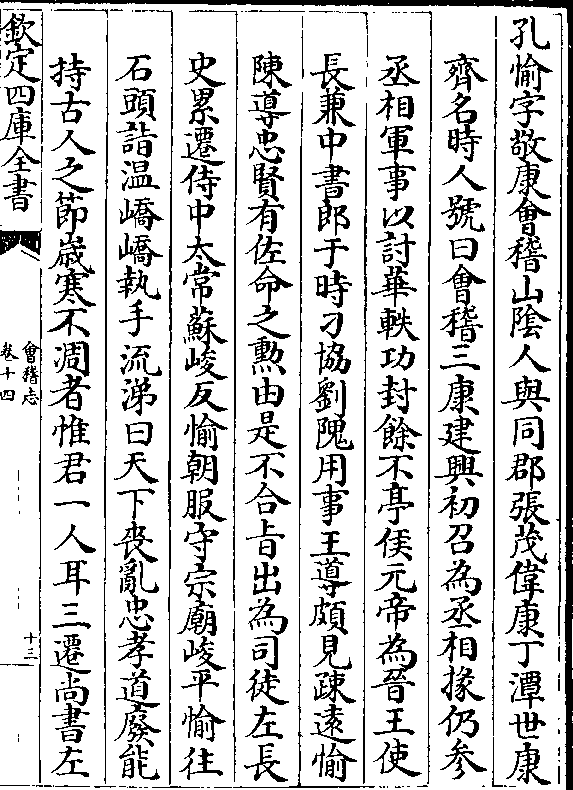 孔愉字敬康會稽山陰人與同郡張茂偉康丁潭世康
齊名時人號曰會稽三康建興初召為丞相掾仍参
丞相軍事以討華軼功封餘不亭侯元帝為晉王使
長兼中書郎于時刁協劉隗用事王導頗見疎遠愉
陳導忠賢有佐命之勲由是不合㫖出為司徒左長
史累遷侍中太常蘇峻反愉朝服守宗廟峻平愉往
石頭詣温嶠嶠執手流涕曰天下喪亂忠孝道廢能
持古人之節嵗寒不凋者惟君一人耳三遷尚書左
欽定四庫全書
會稽志
卷十四
十三